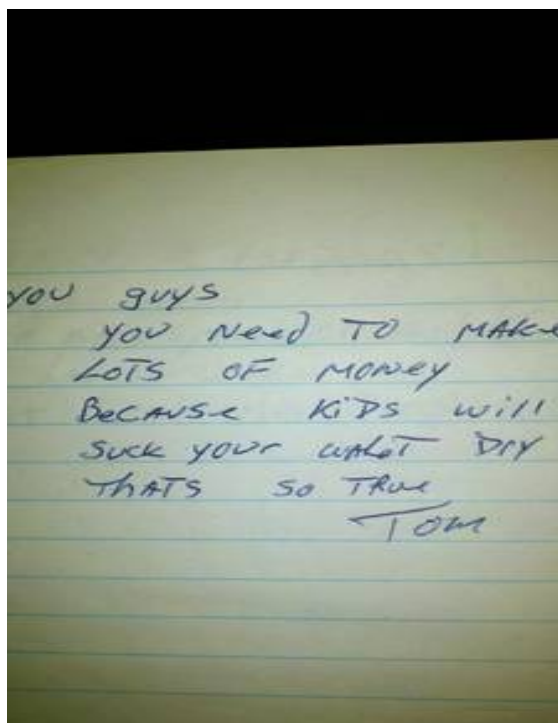 you guys
you Need TO MAKE
LOTS OF MONey
BeCAUSe KiDS will
SUCK your walet DrY
ThATS SO TRUe
Tom